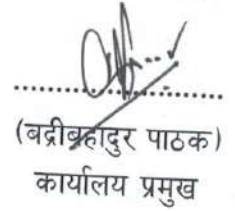 (बद्रीबहादुर पाठक)
कार्यालय प्रमुख